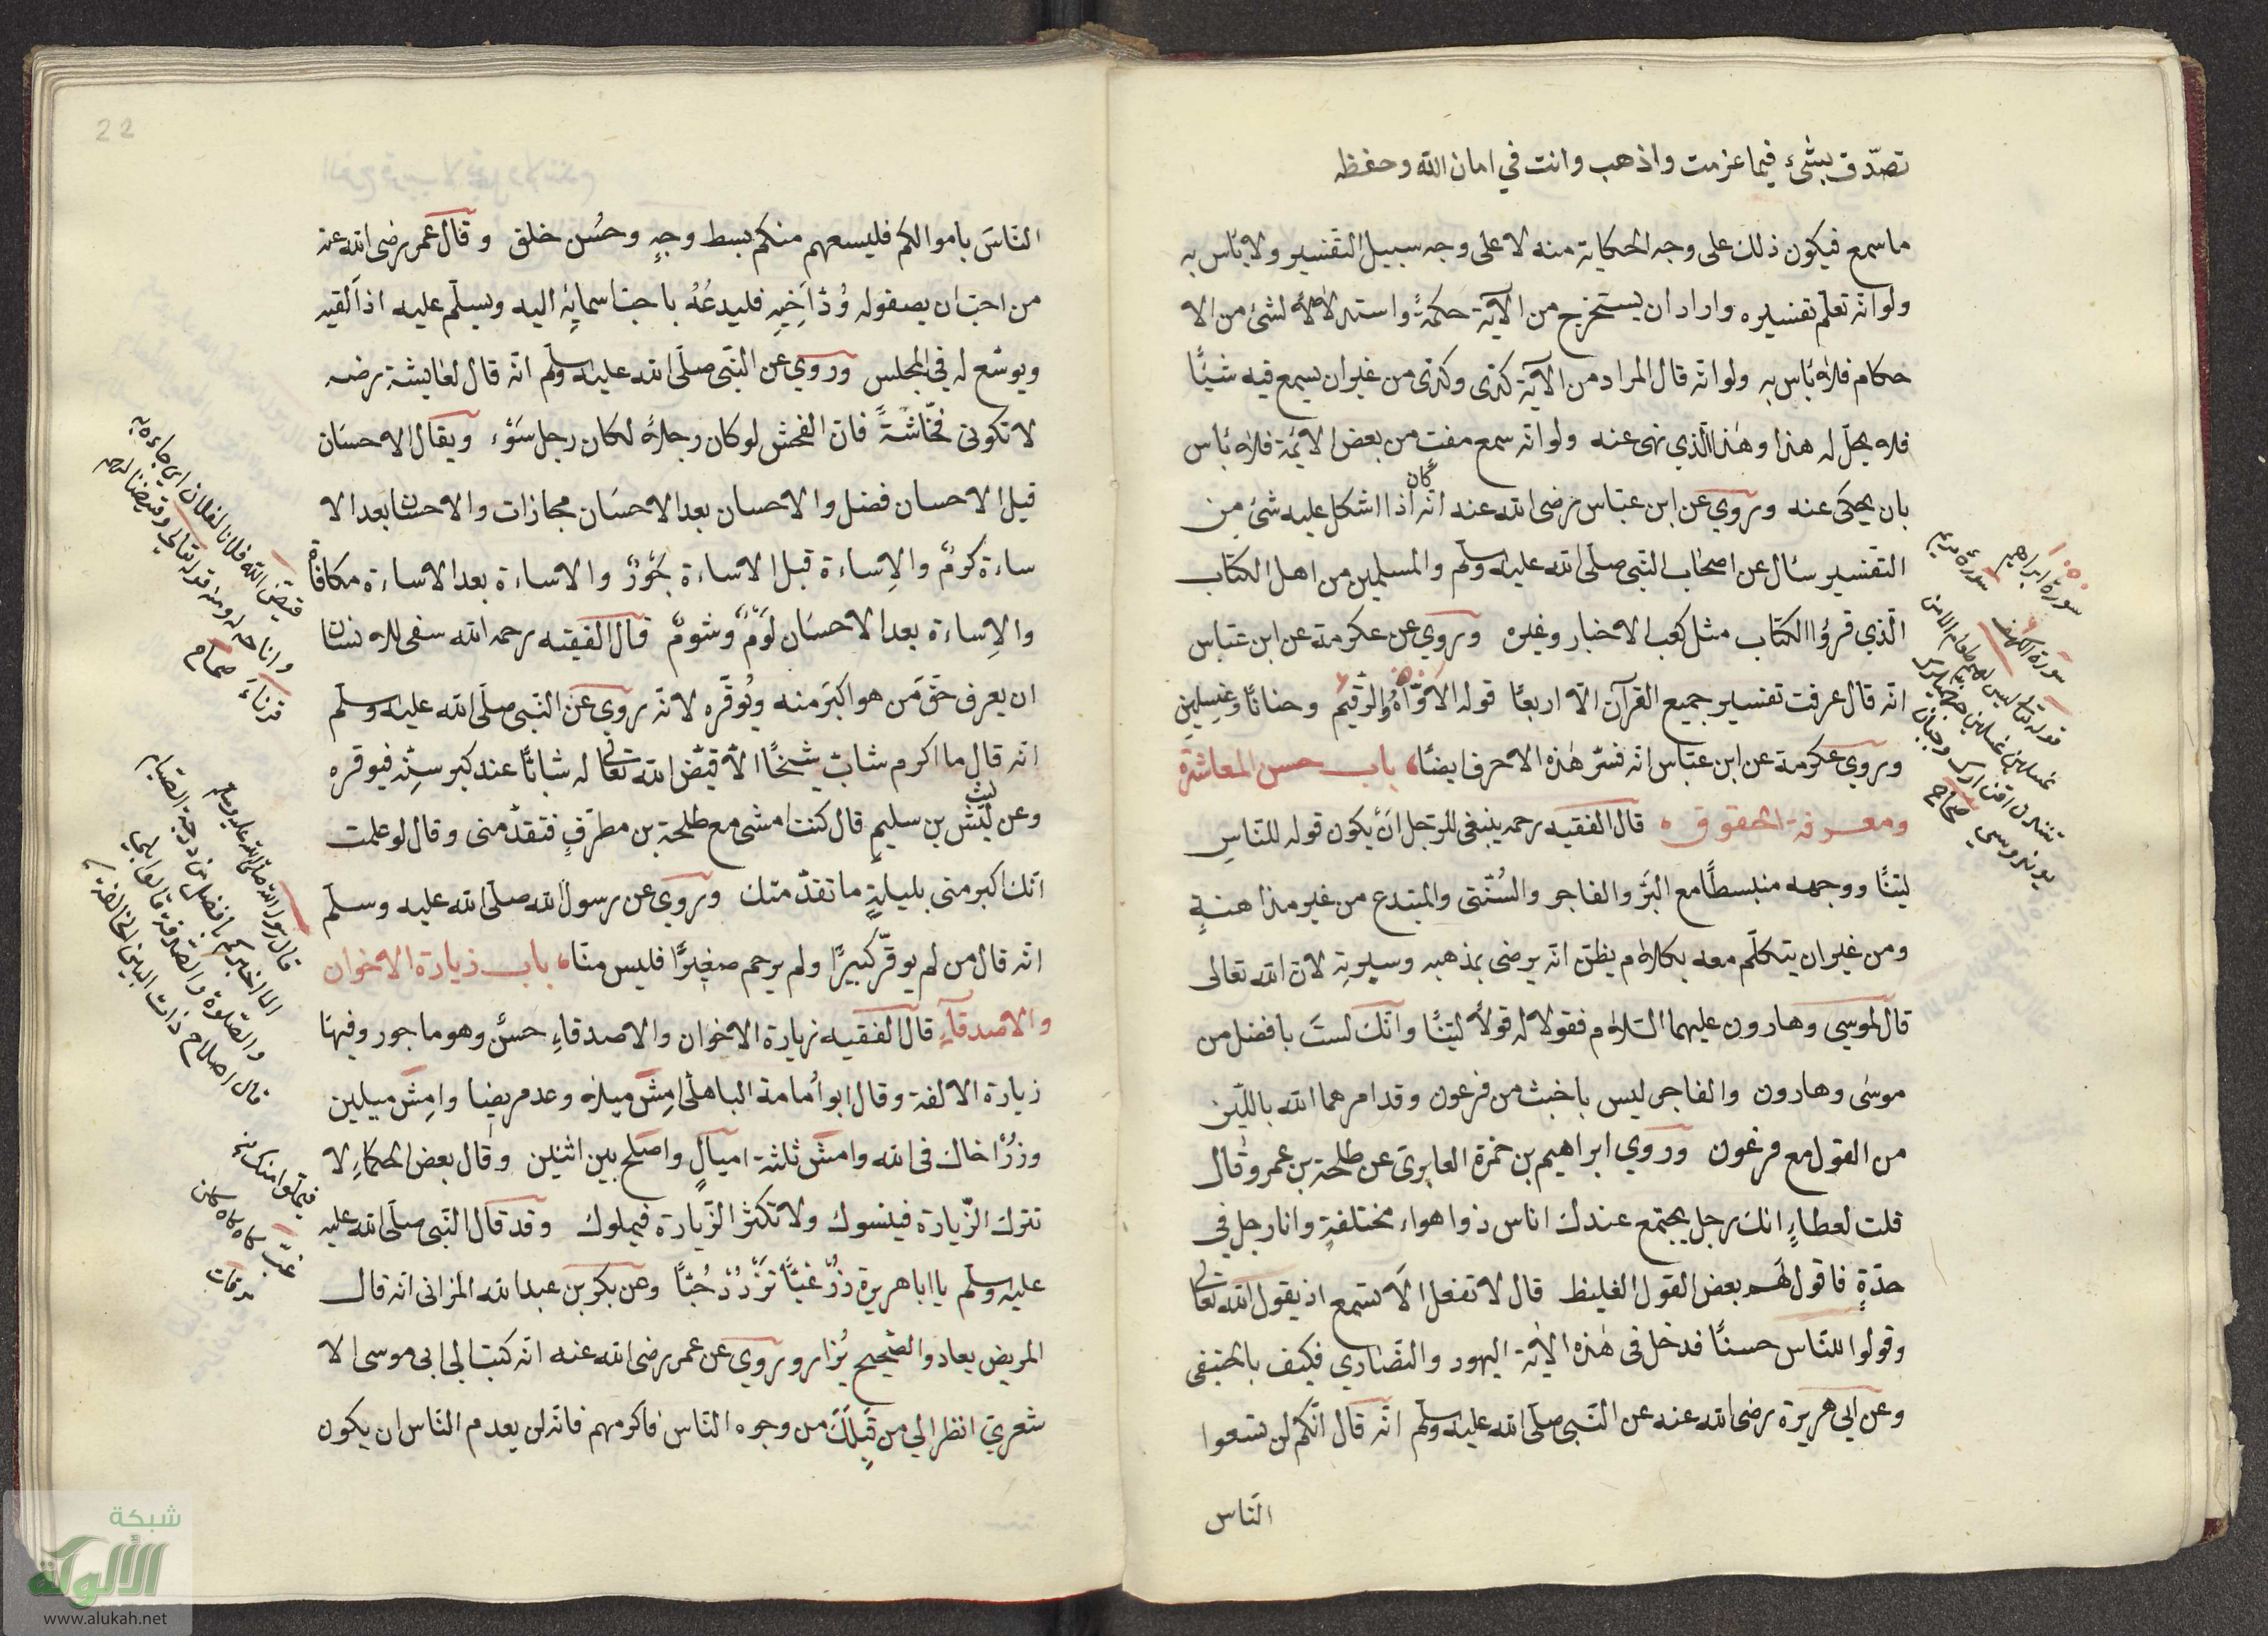 تصدّق بشئ فيما عزمت واذهب وانت في امان الله وحفظه
ما سمع فيكون ذلك على وجه الحكاية منه لا على وجه سبيل التفسير ولا باس به
ولو انّه تعلّم تفسيره واراد ان يستخرج من الآية حكمةً واستدلالاً لشئ من الا
حكام فلا بأس به ولو انّه قال المراد من الآية كذى وكذى من غير ان يسمع فيه شيئًا
فلا يحلّ له هذا وهذا الّذي نهى عنه ولو انّه سمع مفت من بعض الائمّة فلا بأس
بان يحكى عنه وروي عن ابن عبّاس رضى الله عنه انّه كان اذا اشكل عليه شئ من
التفسير سئال عن اصحاب النّبى صلّى الله عليه وسلّم والمسلمين من اهل الكتاب
الّذي قرؤا الكتاب مثل كعب الاخبار وغيره وروي عن عكرمة عن ابن عبّاس
انّه قال عرفت تفسير جميع القرآن الّا اربعًا قوله الاوّاهُ والرّقيم وحنانًا وغسلين
وروي عكرمة عن ابن عبّاس انّه فسّر هذه الاحرف ايضًا باب حسن المعاشرة
ومعرفة الحقوق قال الفقيه رحمه ينبغى للرّجل ان يكون قوله للنّاس
ليّنًا ووجهه منبسطًا مع البرّ والفاجر والسُنّتى والمبتدع من غير مداهنةٍ
ومن غير ان يتكلّم معه بكلام يظنّ انّه يرضى بمذهبه وسيرته لانّ الله تعالى
قال لموسى وهارون عليهما السّلام فقولا له قولاً ليّنًا وانّك لستَ بافضل من
موسى وهارون والفاجر ليس باخبث من فرعون وقد امرهما الله باللّين
من القول مع فرعون وروي ابراهيم بن حمزة العابرى عن طلحة بن عمر وقال
قلت لعطاءٍ انك رجل يجتمع عندك اناس ذوا هواء مختلفةٍ وانا رجل في
حدّةٍ فاقول لهم بعض القول الغليظ قال لا تفعل الا تستمع اذ يقول الله تعالى
وقولوا للنّاس حسنًا فدخل فى هذه الاية اليهود والنّصارى فكيف بالحنيفى
وعن ابى هريرة رضى الله عنه عن النّبى صلّى الله عليه وسلّم انّه قال انّكم لن تسعوا
النّاس
سورة ابراهيم
سورة مريم
سورة الكهف
صحاح
22
النّاسَ باموالكم فليسعهم منكم بسط وجهٍ وحُسن خلق وقال عمر رضى الله عنه
من احبّ ان يصفوله وُدّ اخيه فليدعُهُ باحبّ اسمائِه اليه ويسلّم عليه اذا لقيه
ويوسّع له في المجلس وروي عن النّبى صلّى الله عليه وسلّم انّه قال لعايشة رضه
لا تكونى فحّاشةً فانّ الفحش لو كان رجلاً لكان رجل سَوْء ويقال الاحسَان
قبل الاحسان فضل والاحسان بعد الاحسَان مجازات والاحسان بعد الا
ساءة كرمٌ والاِساءة قبل الاساءة جَوْرٌ والاساءة بعد الاساءة مكافاة
والاِساءة بعد الاحسَان لَوْمٌ وشومٌ قال الفقيه رحمه الله سفى للانسان
ان يعرف حَقّ مَن هو اكبَر منه ويُوقّره لانّه روي عن النّبى صلّى الله عليه وسلّم
انّه قال ما اكرم شابّ شيخًا الّا قيّض الله تعالى له شابًّا عند كبر سنّه فيوقره
وعن ليث بن سليمٍ قال كنت امشى مع طلحة بن مطرفٍ فتقدّمنى وقال لو علمت
انّك اكبر منى بليلةٍ ما تقدّمتك وروي عن رسول الله صلّى الله عليه وسلّم
انّه قال من لم يوقّر كبيرًا ولم يرحم صغيرًا فليس منّا باب زيارة الاخوان
والاصدقآءِ قال الفقيه زيارة الاخوان والاصدقاءِ حسنٌ وهو ماجور وفيها
زيارة الالفة وقال ابو اُمامة الباهلى امِشْ ميلا وعد مريضا وامِشْ ميلين
وزُرْ اخاك فى الله وامشْ ثلثة اميالٍ واصلح بين اثنين وقال بعض الحكماءِ لا
تترك الزّيارة فينسوك ولا تكثر الزّيارة فيملوك وقد قال النّبى صلّى الله عليه
عليه وسلّم يا ابا هريرة زرْ غبًّا تَزْدَدْ حُبًّا وعن بكر بن عبد الله المزانى انّه قال
المريض يعاد والصّحيح يُزار وروي عن عمر رضى الله عنه انّه كتب الى ابى موسى الا
شعريّ انظر الي من قِبلَكَ من وجوه النّاس فاكرمهم فانّه لن يعدم النّاس ان يكون
قيّض الله فلانا لفلان اى جاءه به
واتاحه له ومنه قوله تعالى وقيضنا لهم
قرناءَ صحاح
قال رسول الله صلّى الله عليه وسلم
الا اخبركم بافضل من درجة الصّيام
والصّلوة والصّدقة قالوا بلى
قال اصلاح ذات البين
شبكة
الألوكة
www.alukah.net